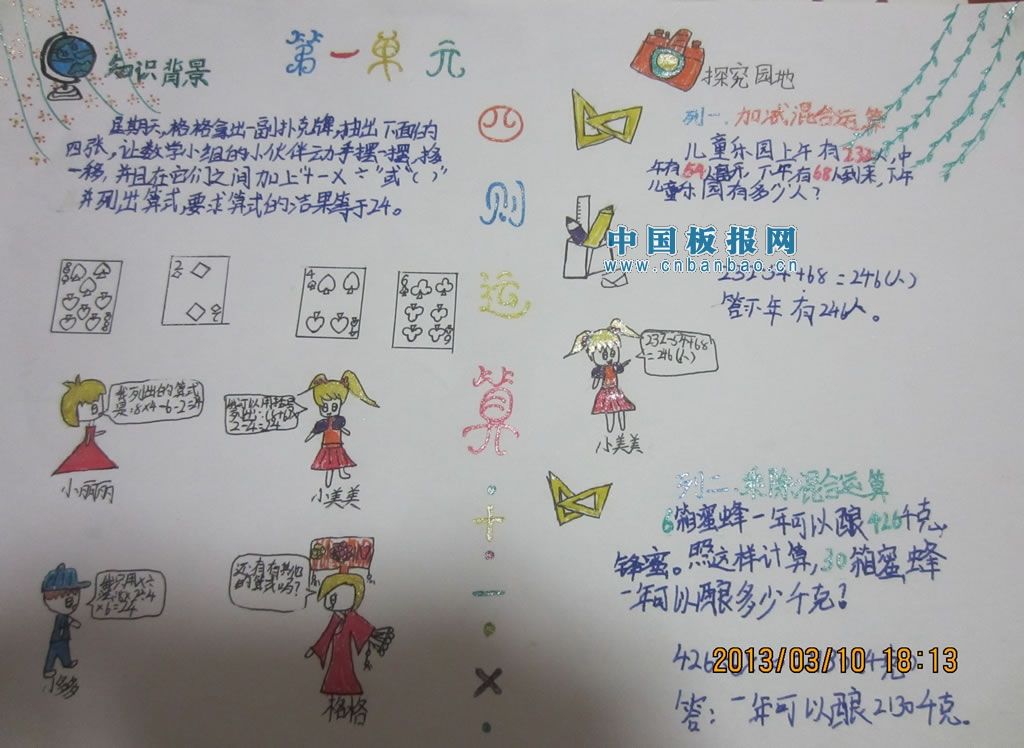 知识背景
第一单元
四则运算
星期天,格格拿出一副扑克牌,抽出下面的
四张,让数学小组的小伙伴动手摆一摆,移
一移,并且在它们之间加上"+-×÷"或"()"
并列出算式,要求算式的结果等于24。
8
2
4
6
我列出的算式
是:8×4-6-2=24
小丽丽
小美美
小多多
还有有其他
的算式吗?
格格
探究园地
列一、加减混合运算
儿童乐园上午有232人,中
儿童乐园有多少人?
中国板报网
www.cnbanbao.cn
232-54+68=246(人)
答:下午有246人。
232-54+68
=246(人)
小美美
列二、乘除混合运算
6箱蜜蜂一年可以酿426千克
蜂蜜。照这样计算,30箱蜜蜂
一年可以酿多少千克?
426
2013/03/10 18:13
答:一年可以酿2130千克。